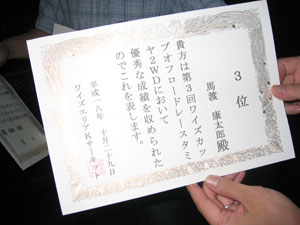 3位
馬渡 康太郎殿
貴方は第3回ワイズカッ
プオフロードレースタミ
ヤ2WDにおいて
優秀な成績を収められた
のでこれを表します。
平成一八年 十月二十九日
ワイズエリアKサーキット